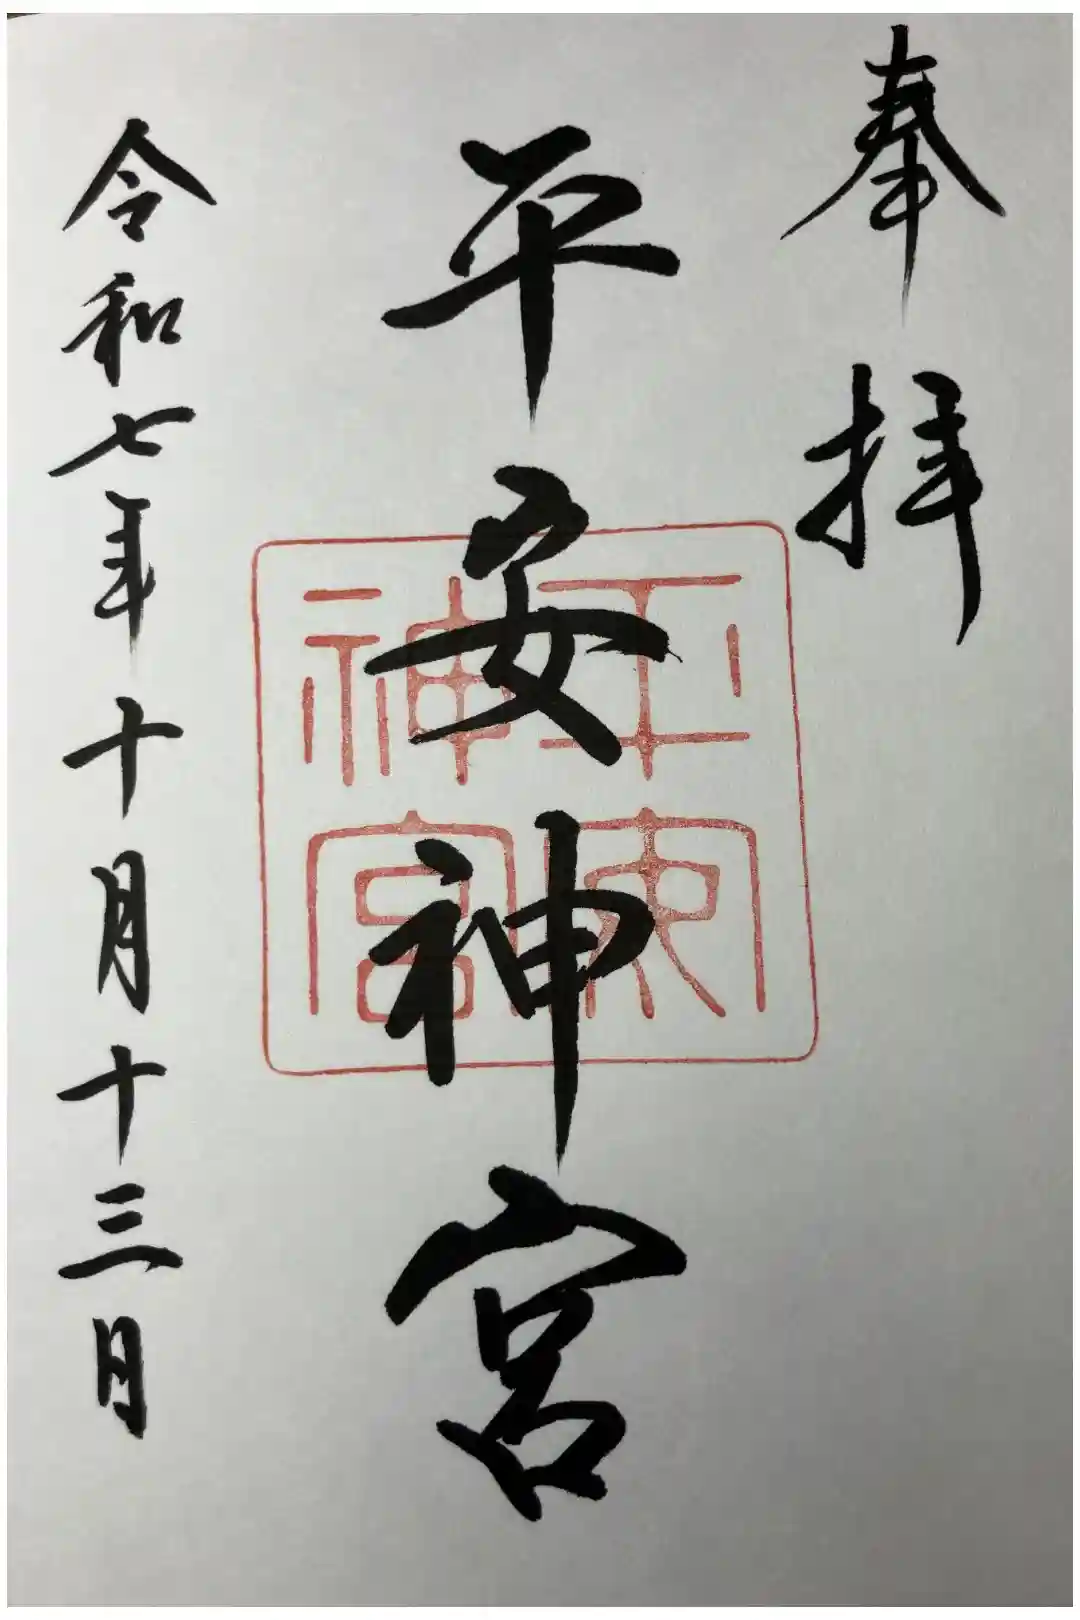 奉拝
平安神宮
令和七年十月十三日
神宮